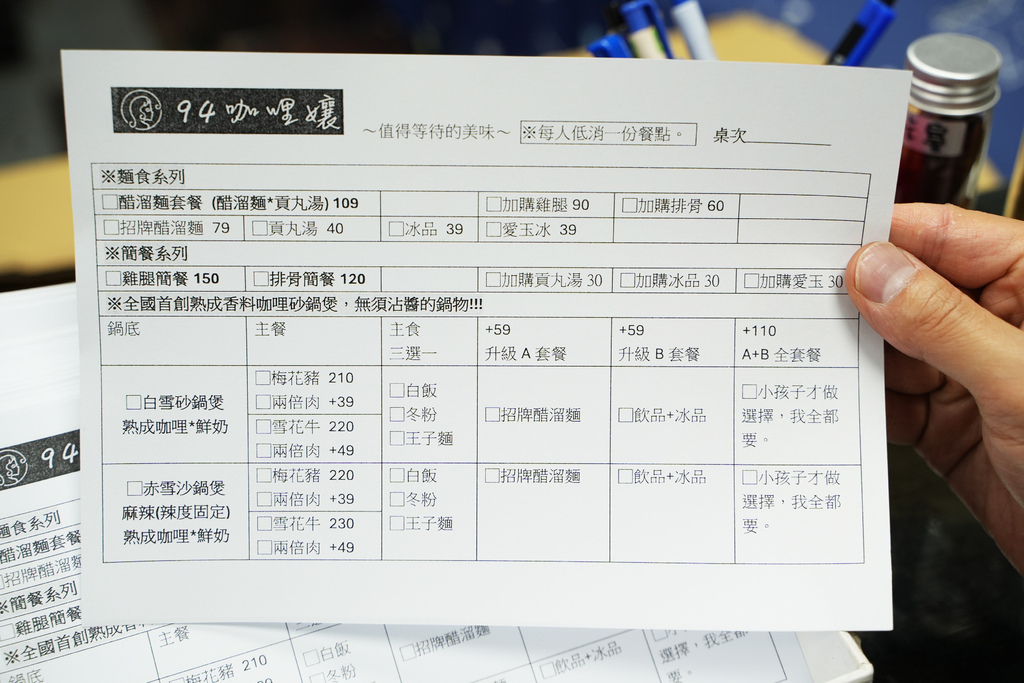 94咖哩孃
～值得等待的美味～ ※每人低消一份餐點。 桌次
※麵食系列
□醋溜麵套餐 (醋溜麵*貢丸湯) 109 □加購雞腿 90 □加購排骨 60
□招牌醋溜麵 79 □貢丸湯 40 □冰品 39 □愛玉冰 39
※簡餐系列
□雞腿簡餐 150 □排骨簡餐 120 □加購貢丸湯 30 □加購冰品 30 □加購愛玉 30
※全國首創熟成香料咖哩砂鍋煲，無須沾醬的鍋物!!!
鍋底 主餐 主食 +59 +59 +110
三選一 升級 A 套餐 升級 B 套餐 A+B 全套餐
□白雪砂鍋煲
熟成咖哩*鮮奶
□梅花豬 210
□兩倍肉 +39
□雪花牛 220
□兩倍肉 +49
□白飯
□冬粉
□王子麵
□招牌醋溜麵
□飲品+冰品
□小孩子才做
選擇，我全都
要。
□赤雪沙鍋煲
麻辣(辣度固定)
熟成咖哩*鮮奶
□梅花豬 220
□兩倍肉 +39
□雪花牛 230
□兩倍肉 +49
□白飯
□冬粉
□王子麵
□招牌醋溜麵
□飲品+冰品
□小孩子才做
選擇，我全都
要。
94
麵食系列
醋溜麵套餐
□招牌醋溜麵
※簡餐系列
□雞腿簡餐
※全國首創熟成香
鍋底 主餐
□梅花豬 210
□白飯
□冬粉
□招牌醋溜麵
□飲品+冰品
選擇，我全都
要。